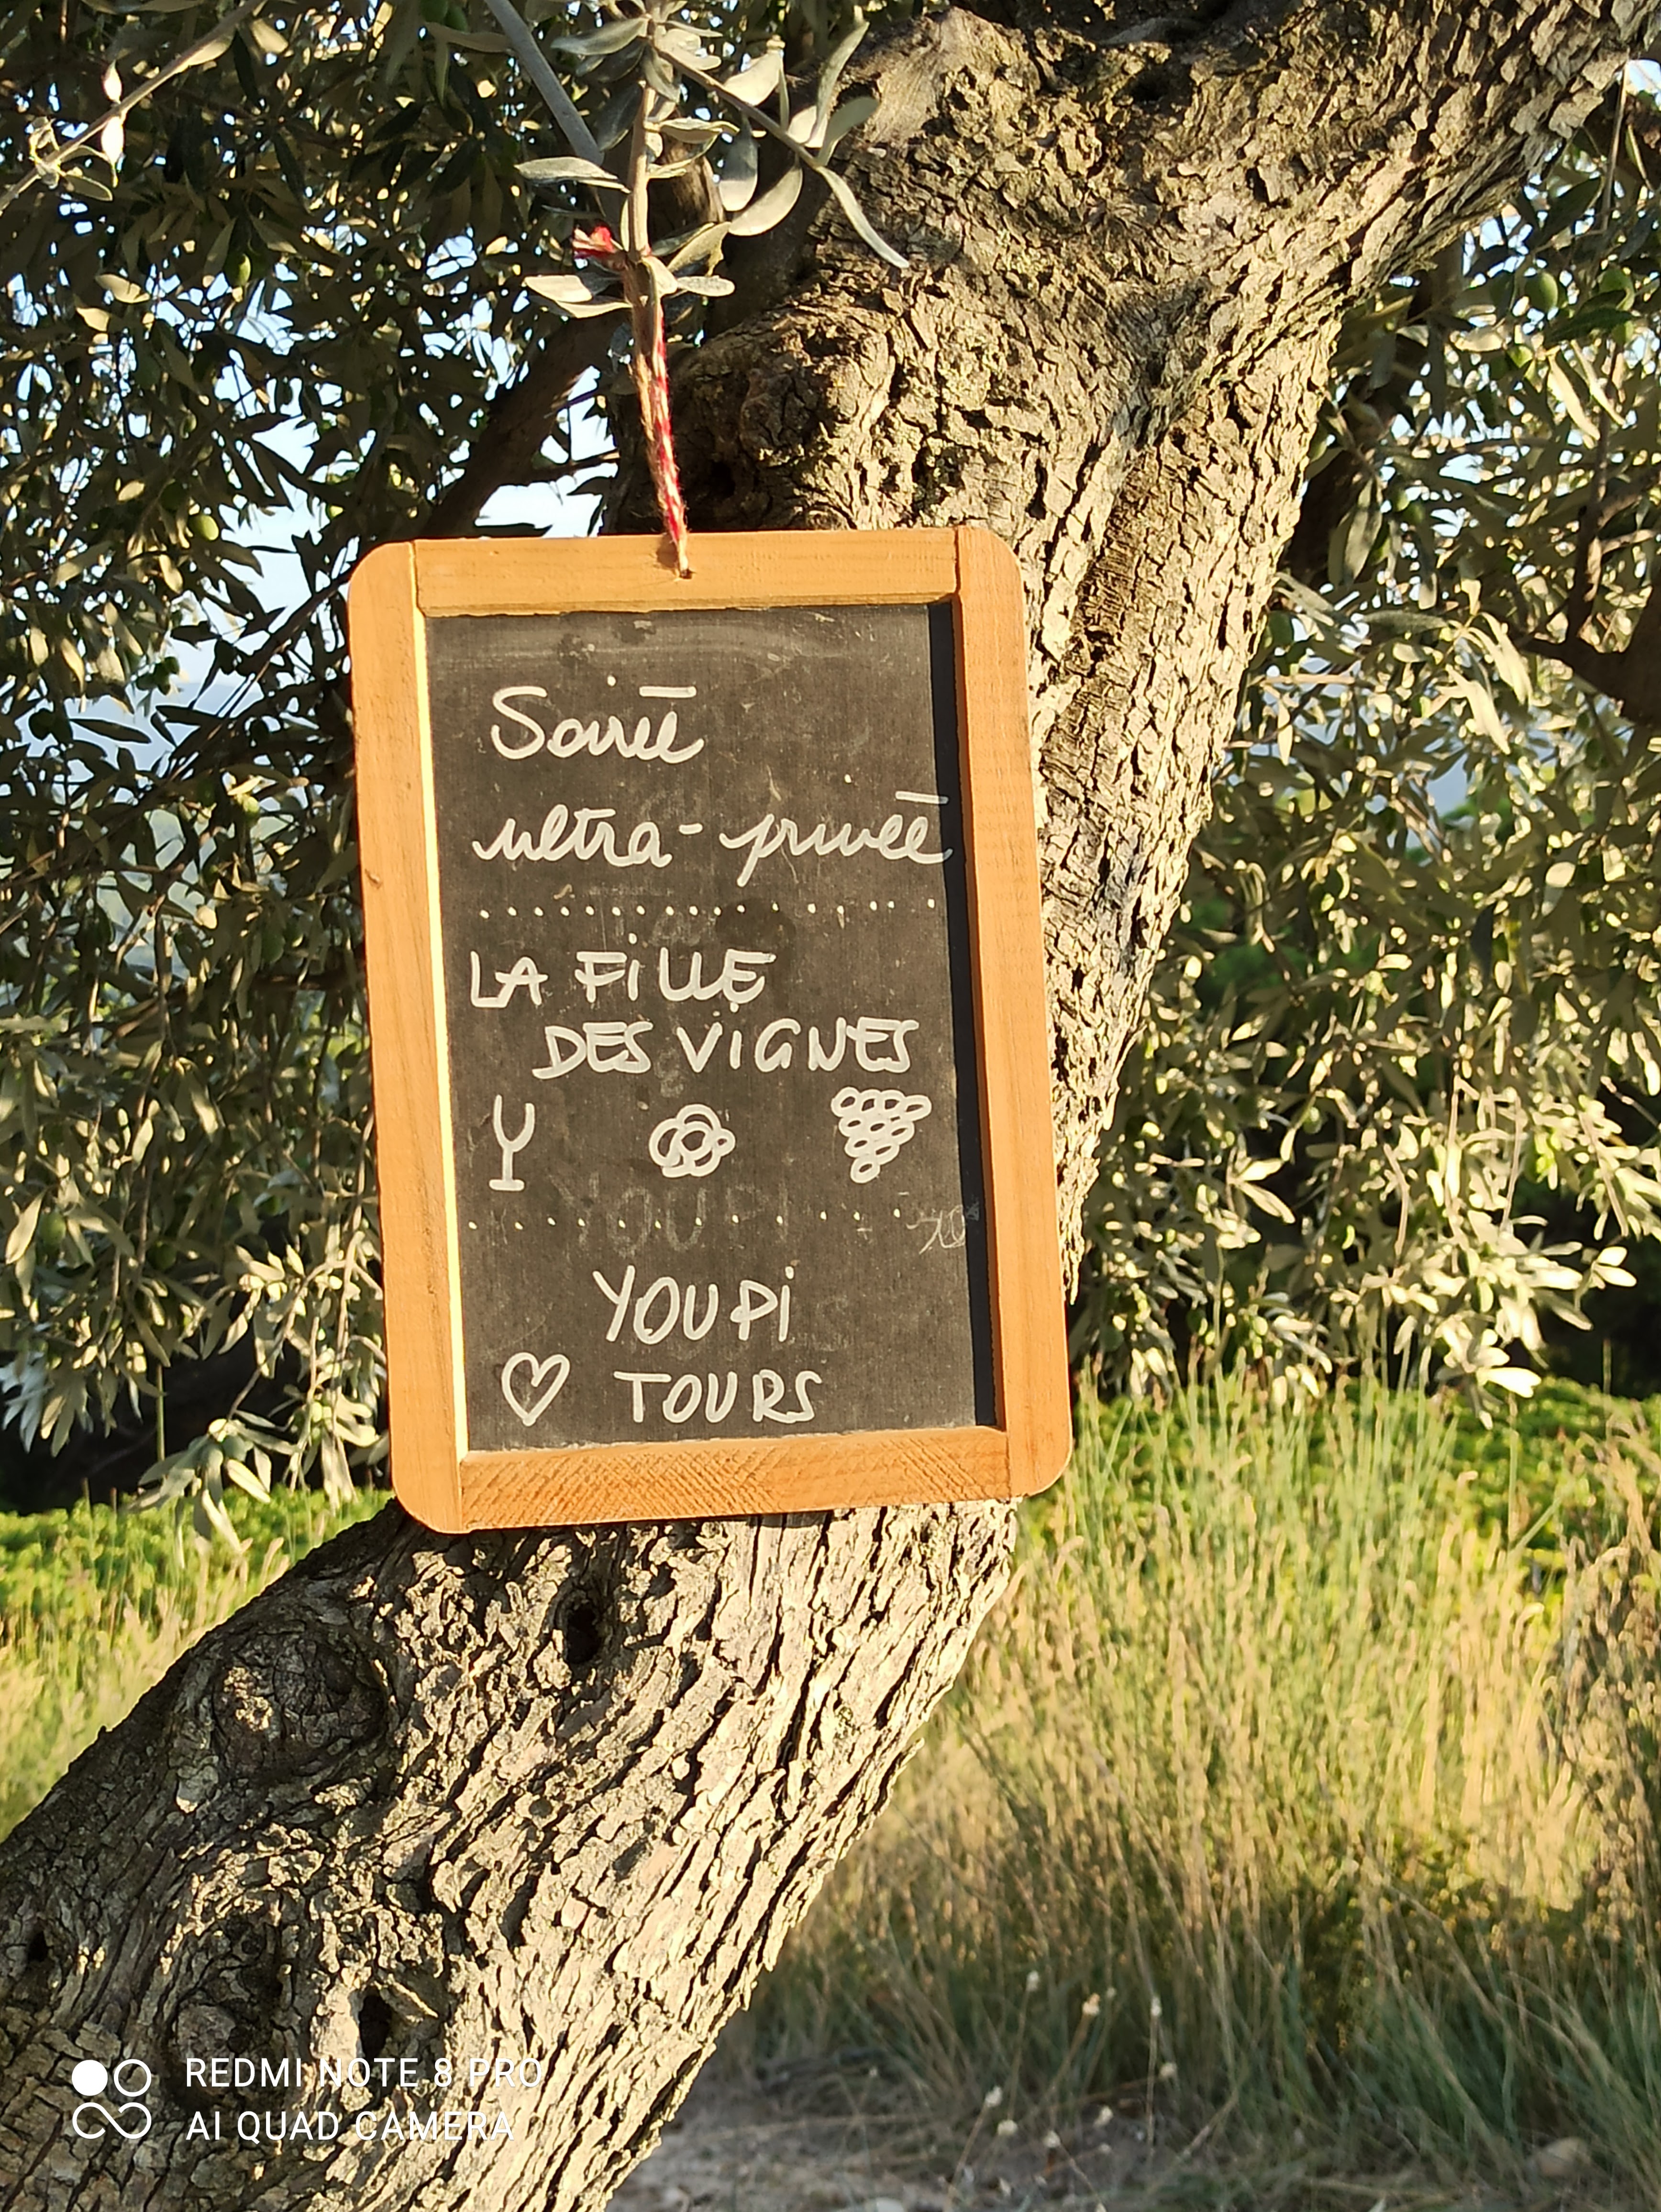 Soirée
ultra-privée
LA FiLLE
DES ViGNES
YOUPI
YOUPi
TOURS
REDMI NOTE 8 PRO
AI QUAD CAMERA